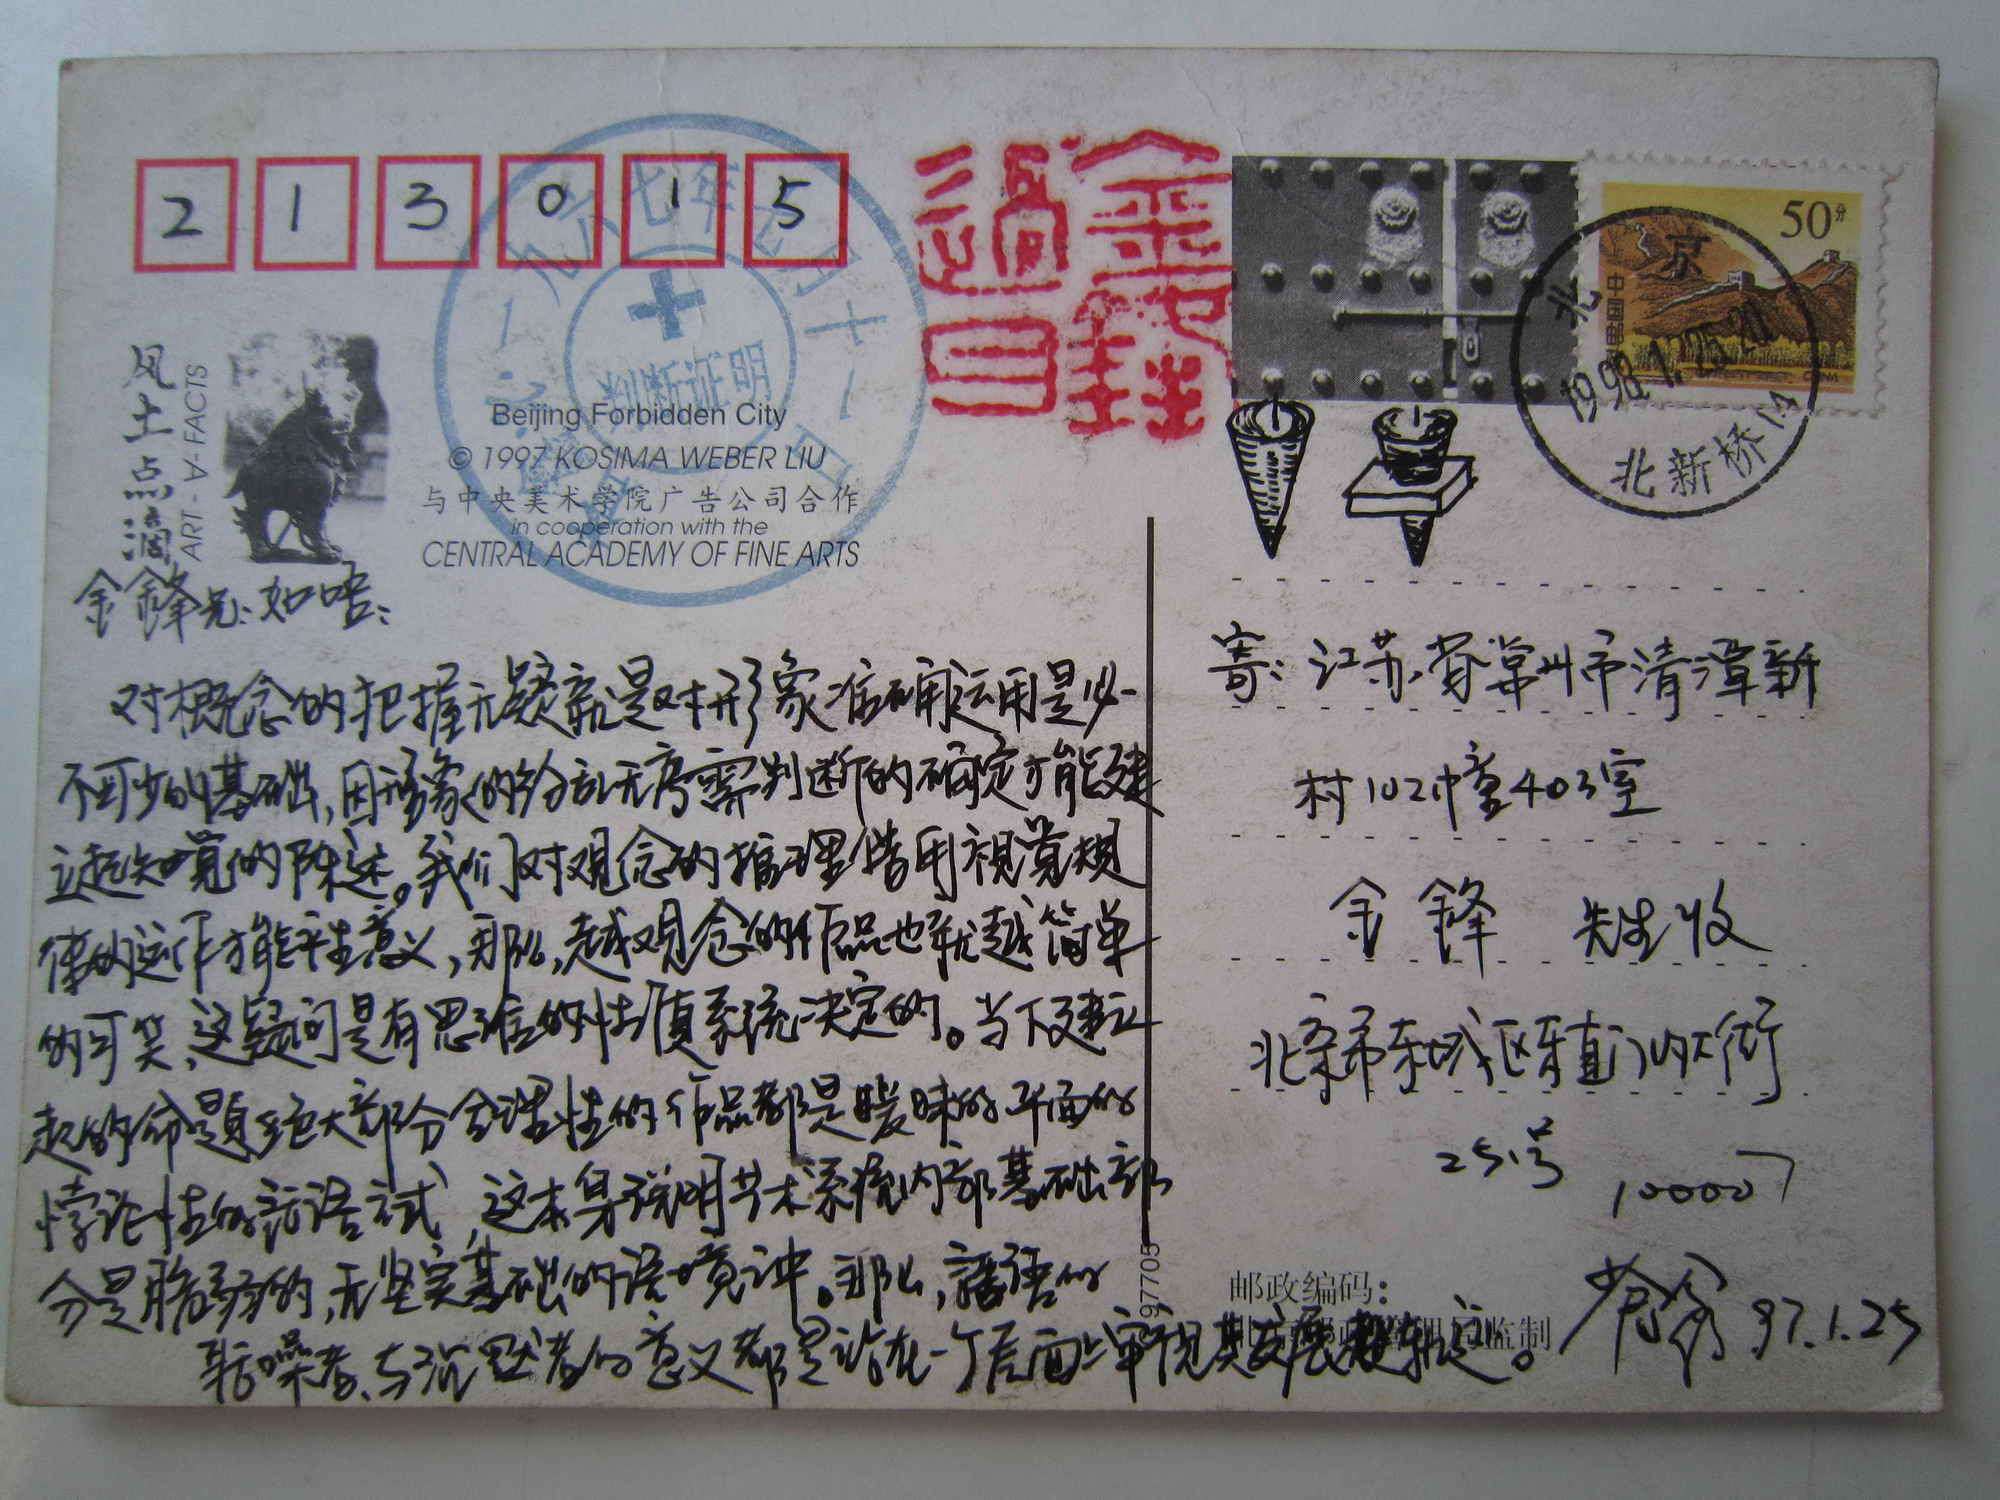 213015
风土点滴
ART - A - FACTS
判断证明
Beijing Forbidden City
© 1997 KOSIMA WEBER LIU
与中央美术学院广告公司合作
in cooperation with the
CENTRAL ACADEMY OF FINE ARTS
金鋒
過目
50分
中国邮政
北京
1998.1.26.20
北新桥14
金鋒兄:如晤:
对概念的把握无疑就是对形象准确运用是必
不可少的基础,因形象的纷乱无序需判断的确定才能建
立起知覚的陈述。我们对观念的推理借用视覚规
律的运作才能产生意义,那么,越观念的作品也就越简单
的可笑,这疑问是有思维的惯系统决定的。当下建立
起的命題绝大部分合理性的作品都是暧昧的平面的
悖论性的话语方式,这本身说明艺术系统内部基础部
分是脆弱的,无坚实基础的语境之中。那么,話语的
聒噪者、与沉默者的意义都是站在一个层面上审视其发展
寄:江苏省常州市清潭新
村102幢403室
金鋒 先生收
北京市东城区东直门内大街
25号
100007
邮政编码:
监制
97705
97.1.25